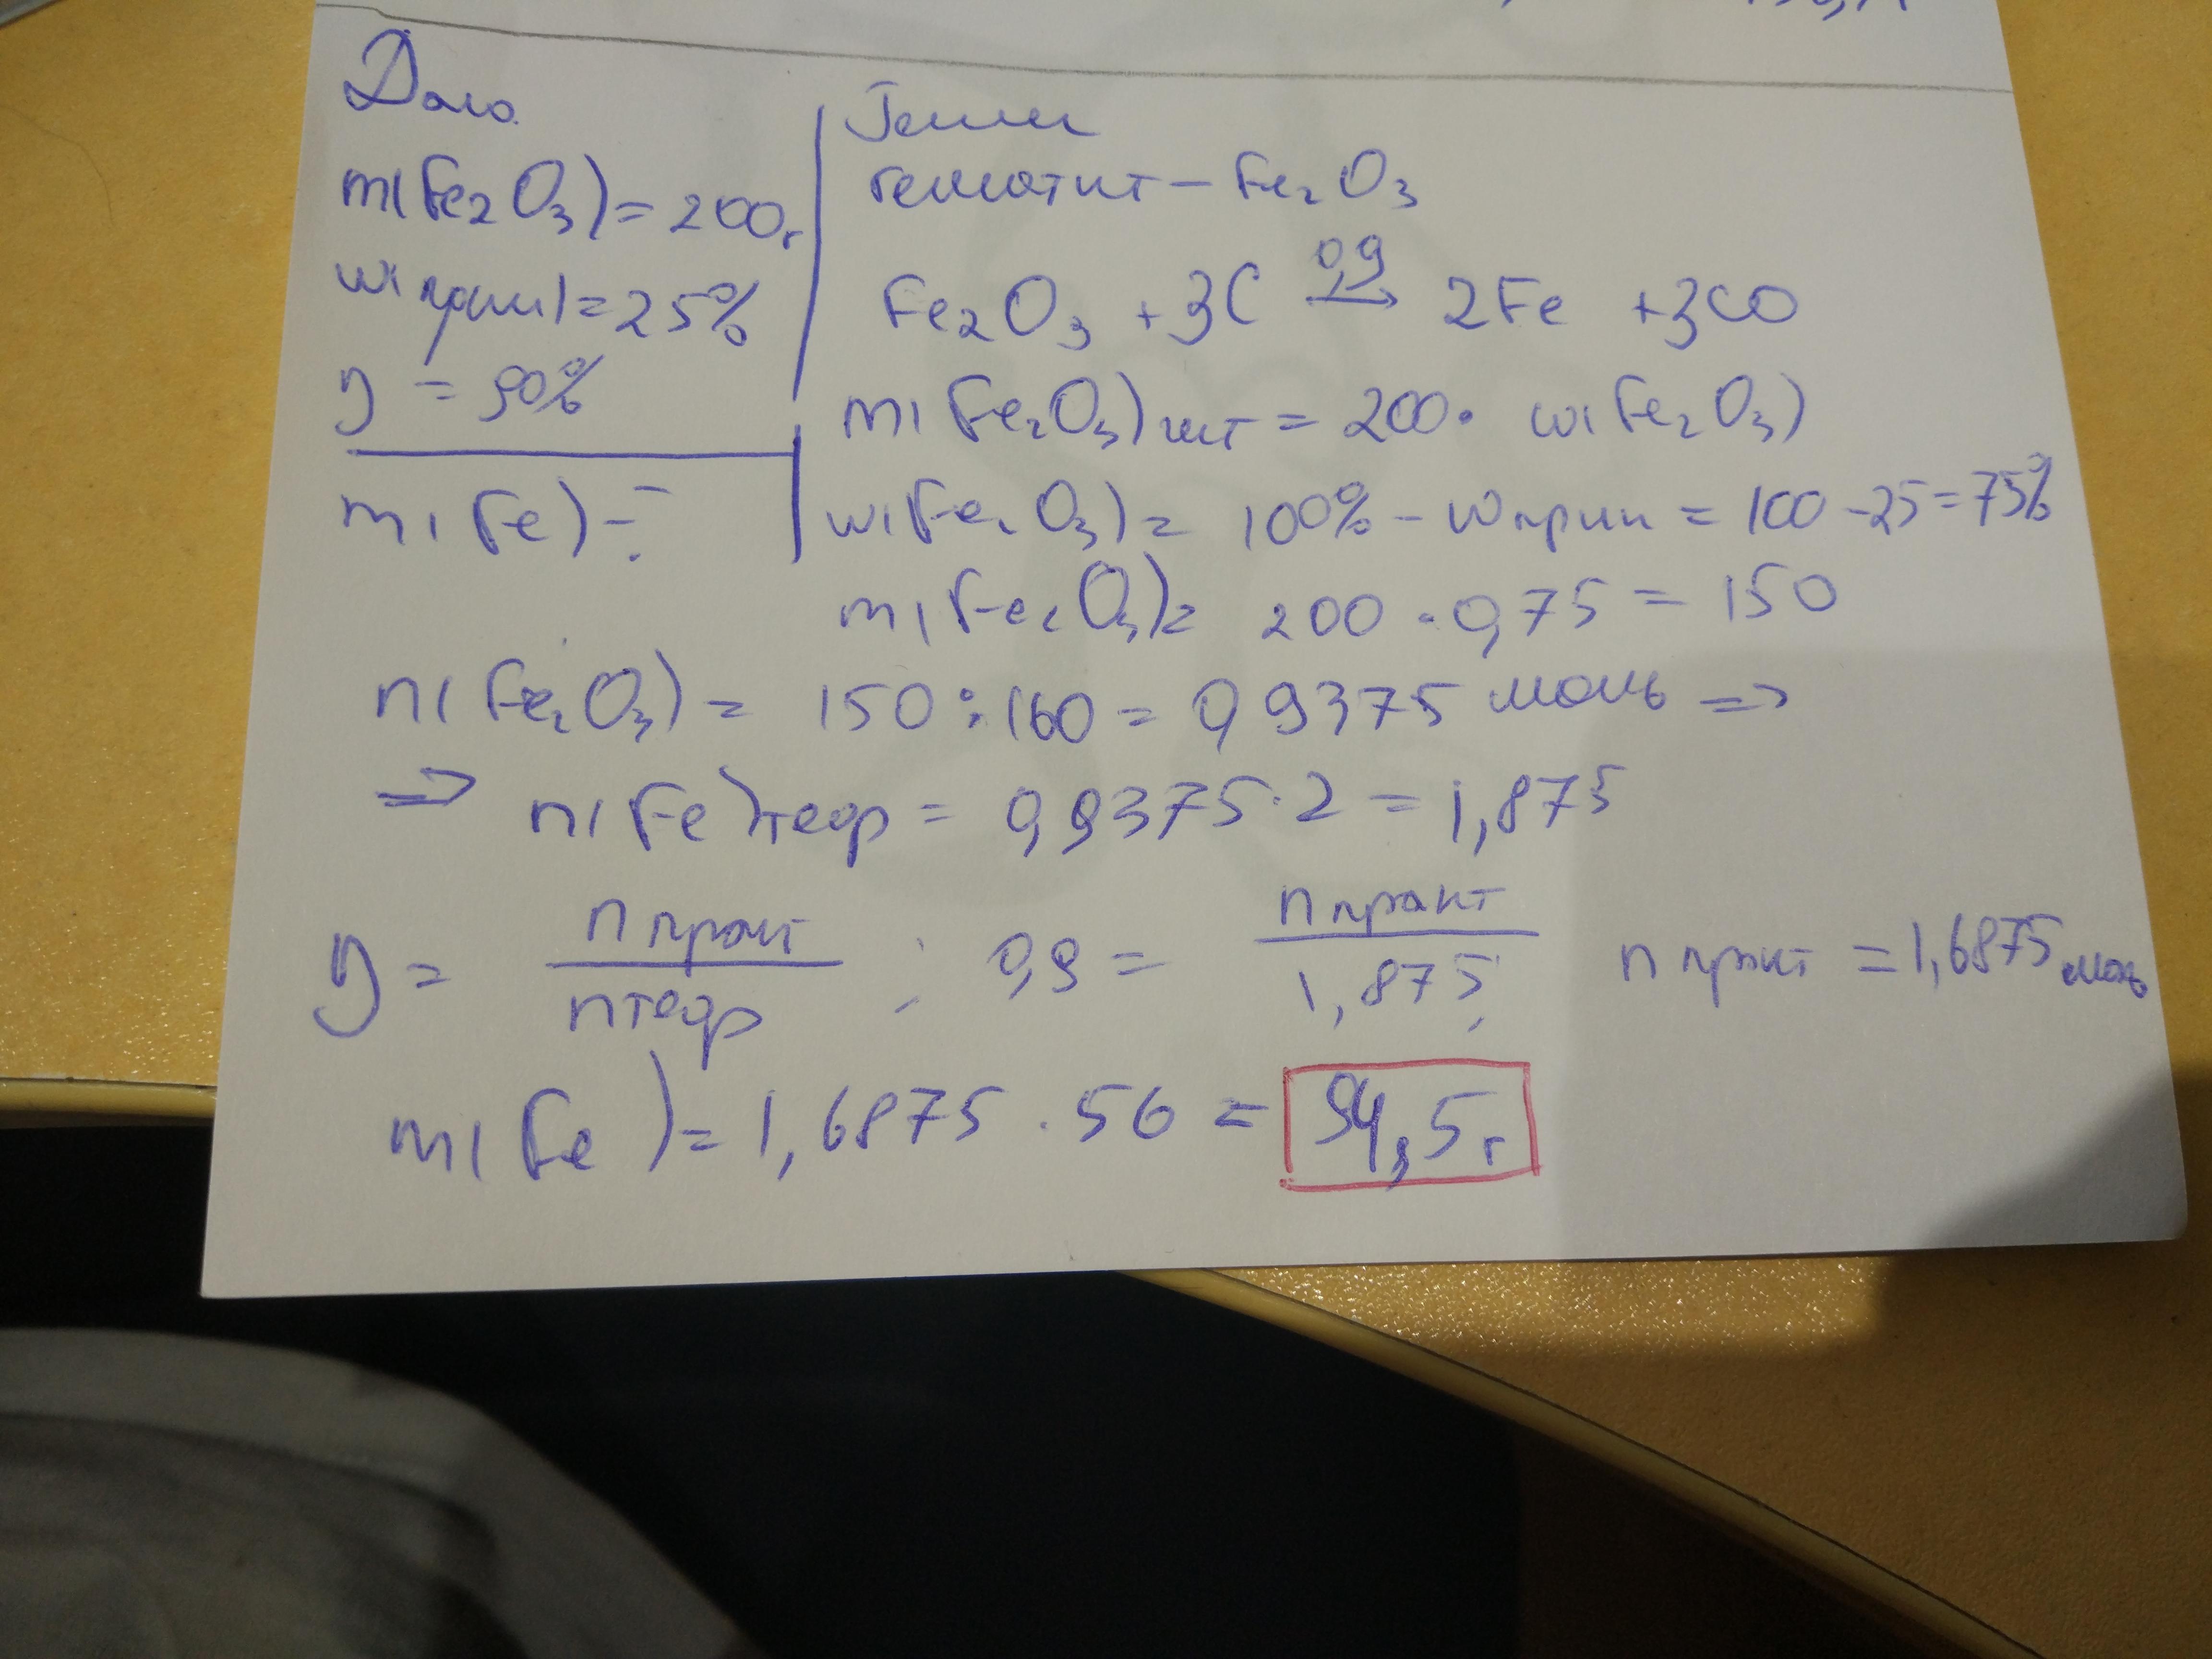 Дано
m(Fe2O3) = 200г
w(прим) = 25%
η = 90%
m(Fe) - ?
гематит - Fe2O3
Fe2O3 + 3C 0,9 → 2Fe + 3CO
m(Fe2O3) чист = 200 · w(Fe2O3)
w(Fe2O3) = 100% - wприм = 100 - 25 = 75%
m(Fe2O3) = 200 · 0,75 = 150
n(Fe2O3) = 150 : 160 = 0,9375 моль =>
=> n(Fe)теор = 0,9375 · 2 = 1,875
η = nпракт / nтеор ; 0,9 = nпракт / 1,875 ; nпракт = 1,6875 моль
m(Fe) = 1,6875 · 56 = 94,5г